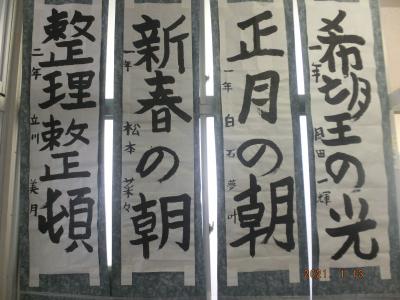 希望の光
一年 一輝
正月の朝
一年 白石 夢叶
新春の朝
一年 松本 菜々
整理整頓
二年 立川 美月
2021. 1.13